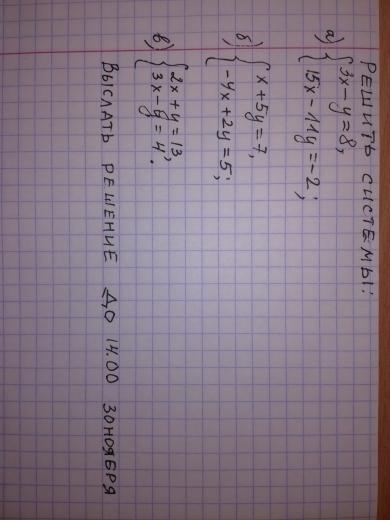 РЕШИТЬ СИСТЕМЫ:
а) { 3x - y = 8,
15x - 11y = -2;
б) { x + 5y = 7,
-4x + 2y = 5;
в) { 2x + y = 13,
3x - y = 4.
ВЫСЛАТЬ РЕШЕНИЕ ДО 14.00 30НОЯБРЯ